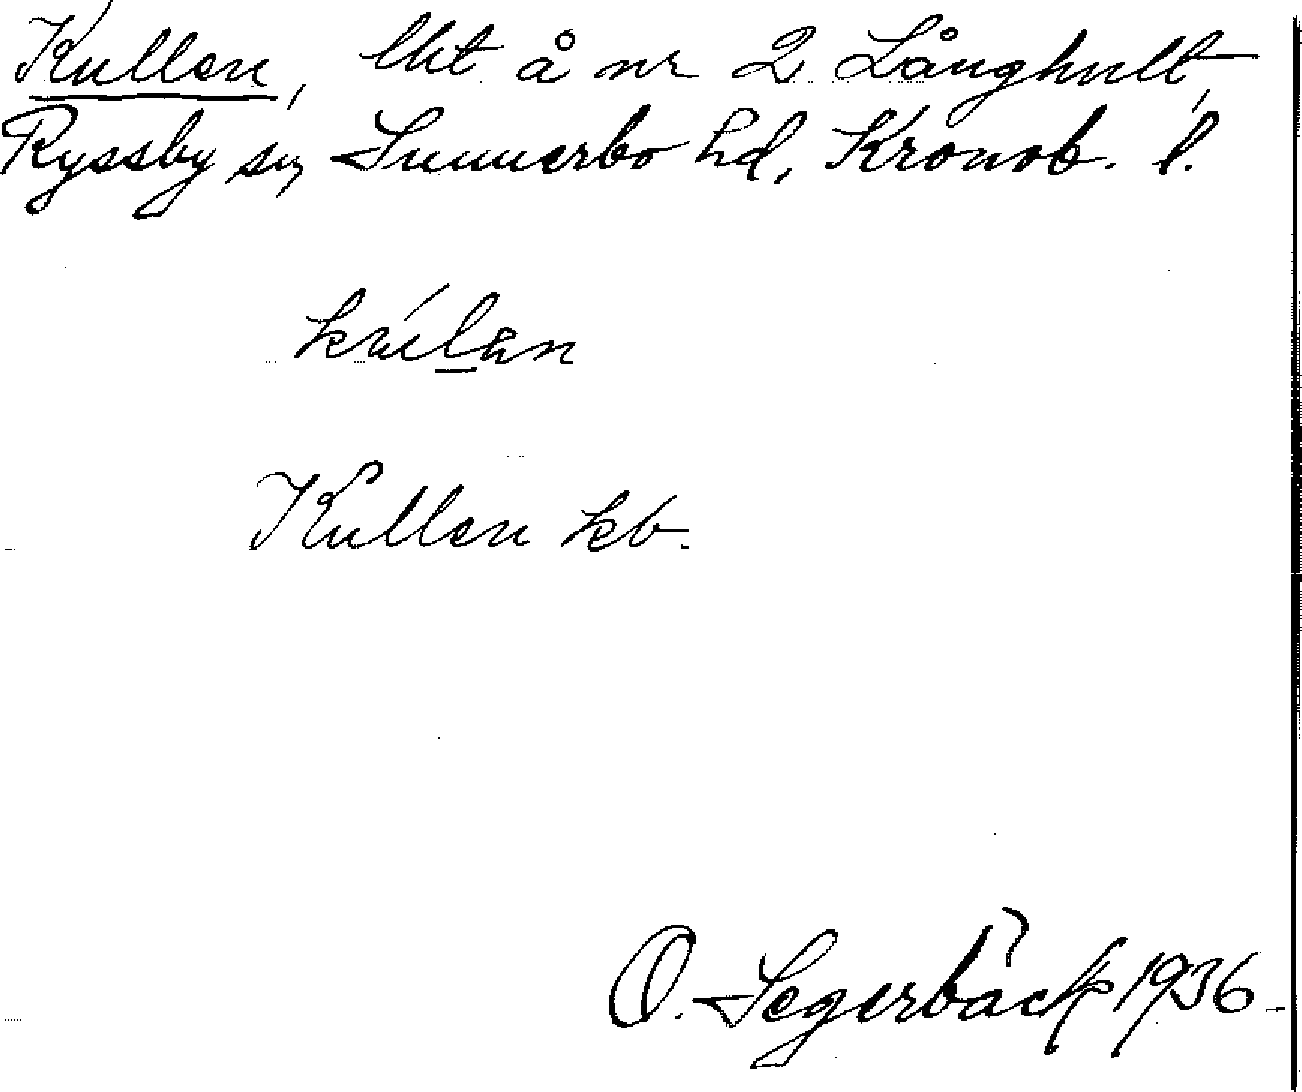 Kullen, lht å nr 2 Långhult,
Ryssby sn, Sunnerbo hd, Kronob. l.
Kullen kb.
O. Segerbäck 1936